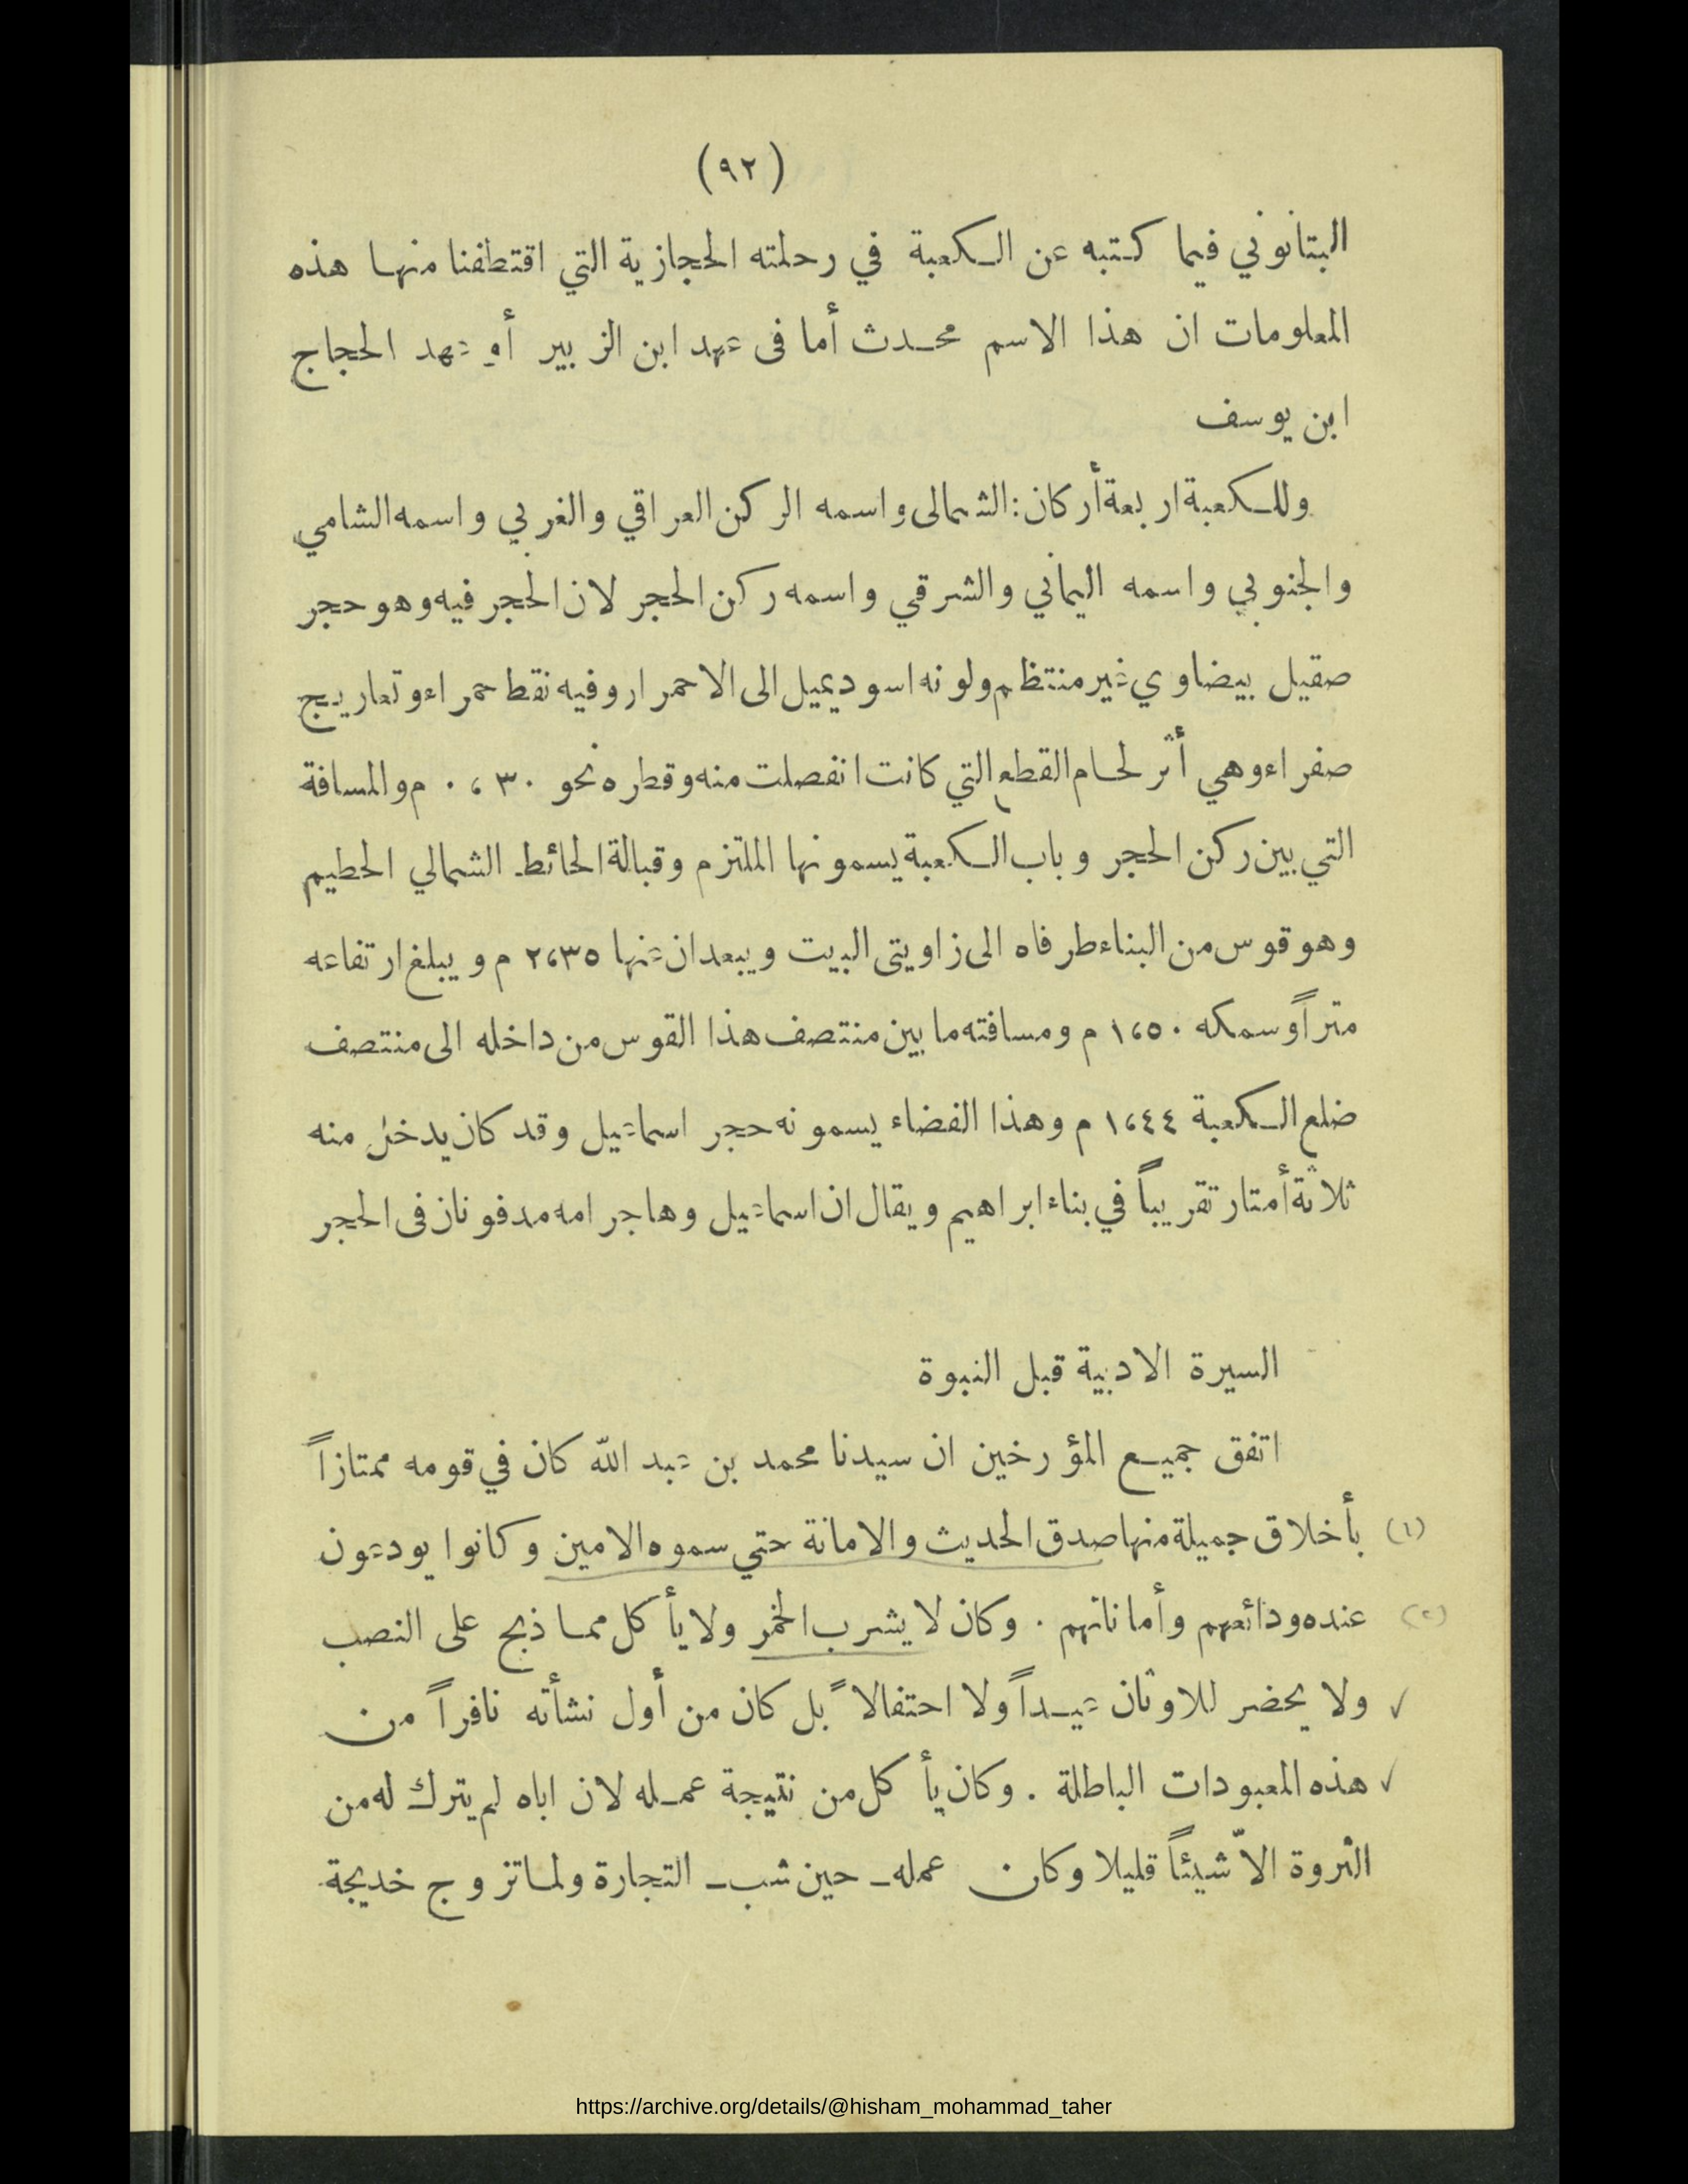 (٩٢)
البتانوني فيما كتبه عن الكعبة في رحلته الحجازية التي اقتطفنا منها هذه
المعلومات ان هذا الاسم محدث أما فى عهد ابن الزبير أو عهد الحجاج
ابن يوسف
وللكعبة اربعة أركان: الشمالى واسمه الركن العراقي والغربي واسمه الشامي
والجنوبي واسمه اليماني والشرقي واسمه ركن الحجر لان الحجر فيه وهو حجر
صقيل بيضاوي غير منتظم ولونه اسود يميل الى الاحمرار وفيه نقط حمراء وتعاريج
صفراء وهي أثر لحام القطع التي كانت انفصلت منه وقطره نحو ٠،٣٠ م والمسافة
التي بين ركن الحجر وباب الكعبة يسمونها الملتزم وقبالة الحائط الشمالي الحطيم
وهو قوس من البناء طرفاه الى زاويتى البيت ويبعدان عنها ٢،٣٥ م ويبلغ ارتفاعه
متراً وسمكه ١،٥٠ م ومسافته ما بين منتصف هذا القوس من داخله الى منتصف
ضلع الكعبة ١،٤٤ م وهذا الفضاء يسمونه حجر اسماعيل وقد كان يدخل منه
ثلاثة أمتار تقريباً في بناء ابراهيم ويقال ان اسماعيل وهاجر امه مدفونان فى الحجر
السيرة الادبية قبل النبوة
اتفق جميع المؤرخين ان سيدنا محمد بن عبد الله كان في قومه ممتازاً
(١) بأخلاق جميلة منها صدق الحديث والامانة حتي سموه الامين وكانوا يودعون
(٢) عنده ودائعهم وأماناتهم . وكان لا يشرب الخمر ولا يأكل مما ذبح على النصب
✓ ولا يحضر للاوثان عيداً ولا احتفالاً بل كان من أول نشأته نافراً من
✓ هذه المعبودات الباطلة . وكان يأكل من نتيجة عمله لان اباه لم يترك له من
الثروة الاّ شيئاً قليلا وكان عمله ـ حين شب ـ التجارة ولما تزوج خديجة
https://archive.org/details/@hisham_mohammad_taher